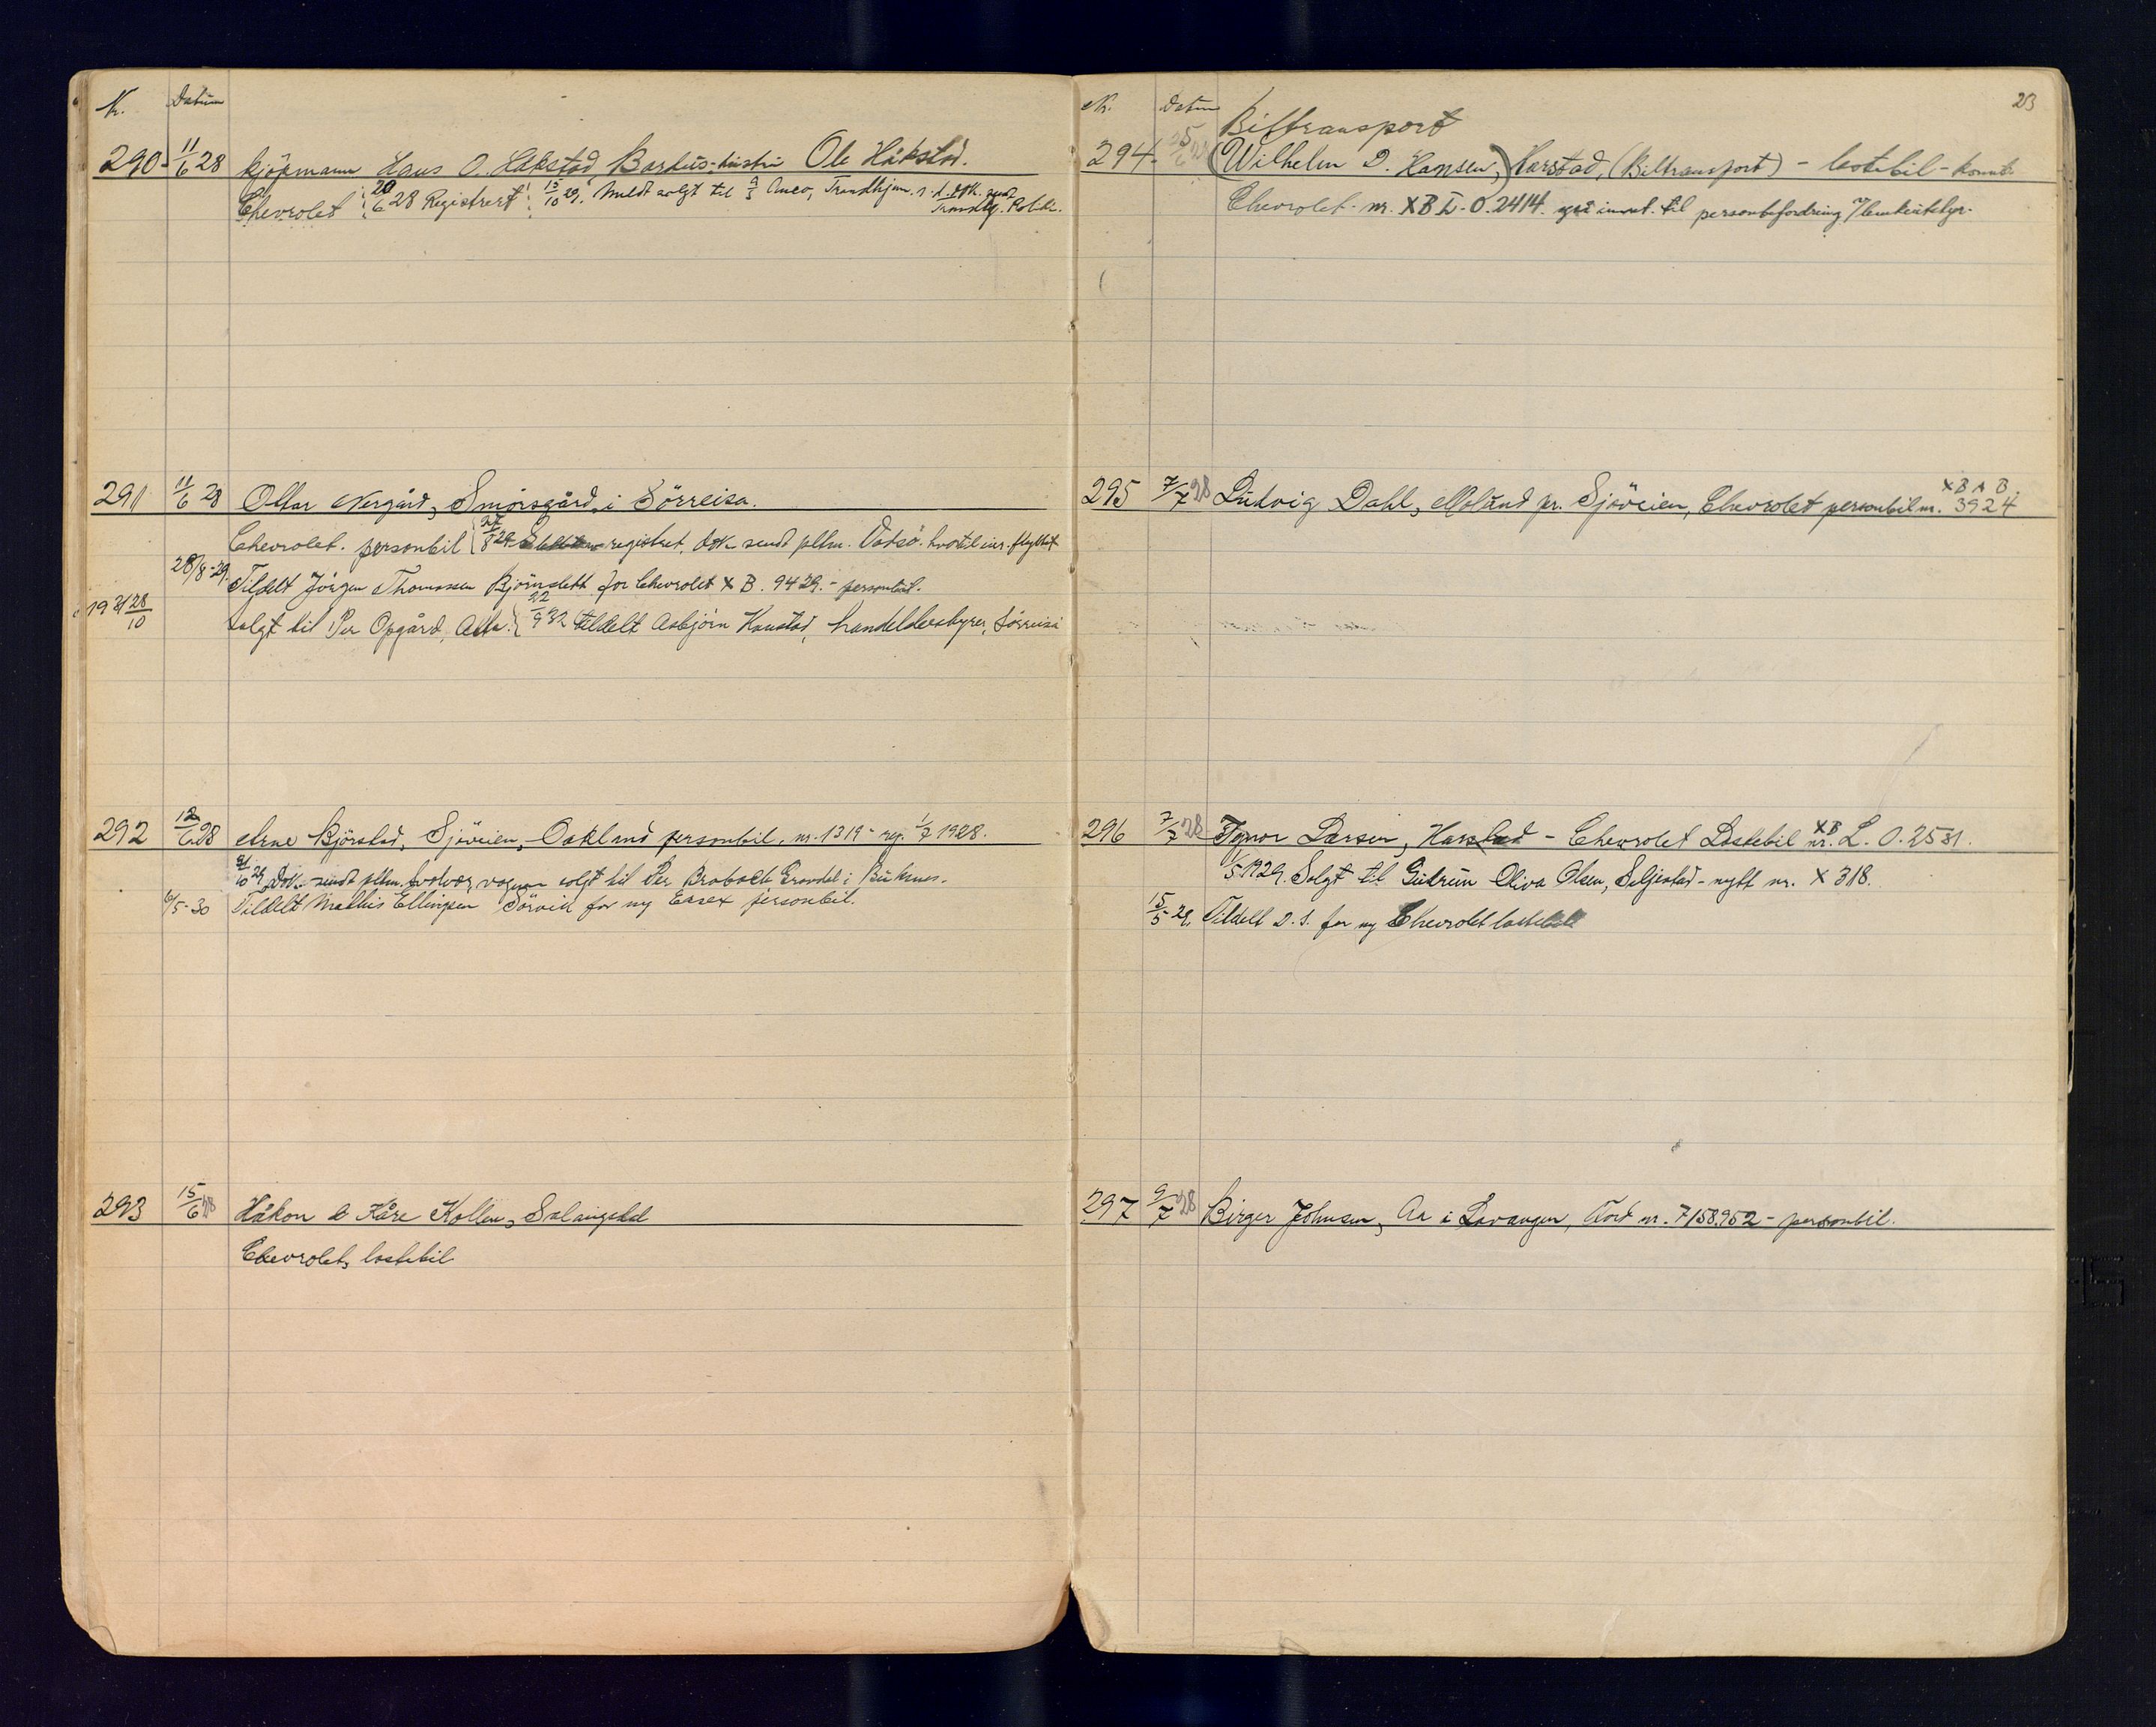 Nr. Datum
290 11/6 28 Kjöpmann Hans O. Hakstad, Ole Håkstad.
Chevrolet 20/6 28 Registrert 15/10 29. Meldt solgt til A/S Anco, Trondhjem. Dok. sendt
Trondhj. Politi.
291 11/6 28 Ottar Nergård, Smörsgård i Sörreisa.
Chevrolet. personbil registrert, dok sendt pltm. Vadsö. hvortil inr. flyttet
28/8-29. Tildelt Jörgen Thomassen Björnslett for Chevrolet X B. 9429. - personbil.
1931 28/10 Solgt til Per Opgård, Alta. 22/9 32 tildelt Asbjörn Kaustad, handelsbestyrer, Sörreisa
292 12/6 28 Arne Björstad, Sjöveien, - Oakland personbil, nr. 1319 - reg. 1/7 1928.
21/10 29. Dok. sendt pltm. Svolvær, vognen solgt til Per Brobach i Buksnes.
6/5-30 Tildelt Mathis Ellingsen Sörvik for ny Essex personbil.
293 15/6 28 Håkon & Kåre Kollen, Salangsdal
Chevrolet, lastebil
Nr. Datum 23
Biltransport
294 25/6 28 (Wilhelm D. Hansen,) Harstad, (Biltransport) - lastebil - komb.
Chevrolet - nr. X B L - O. 2414. til personbefordring
X B A B.
295 7/7 28 Ludvig Dahl, Moland pr. Sjöveien, Chevrolet personbil nr. 3924
XB
296 7/7 28 Larsen, Harstad - Chevrolet Lastebil nr. L. O. 2531.
1/5 1929. Solgt til Gudrun Oliva Olsen, Seljestad - nytt nr. X 318.
15/5 29. Tildelt D. S. for ny Chevrolet lastebil
297 9/7 28 Birger Johnsen, Aa i Lavangen, Ford nr. 7158952 - personbil.